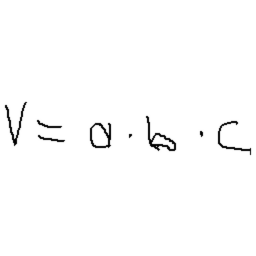 V = a · b · c